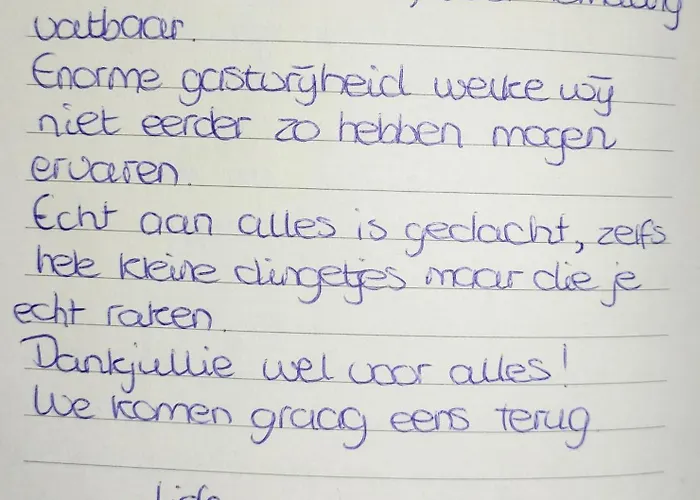 vatbaar.
Enorme gastvrijheid welke wij
niet eerder zo hebben mogen
ervaren.
Echt aan alles is gedacht, zelfs
hele kleine dingetjes maar die je
echt raken.
Dankjullie wel voor alles!
We komen graag eens terug